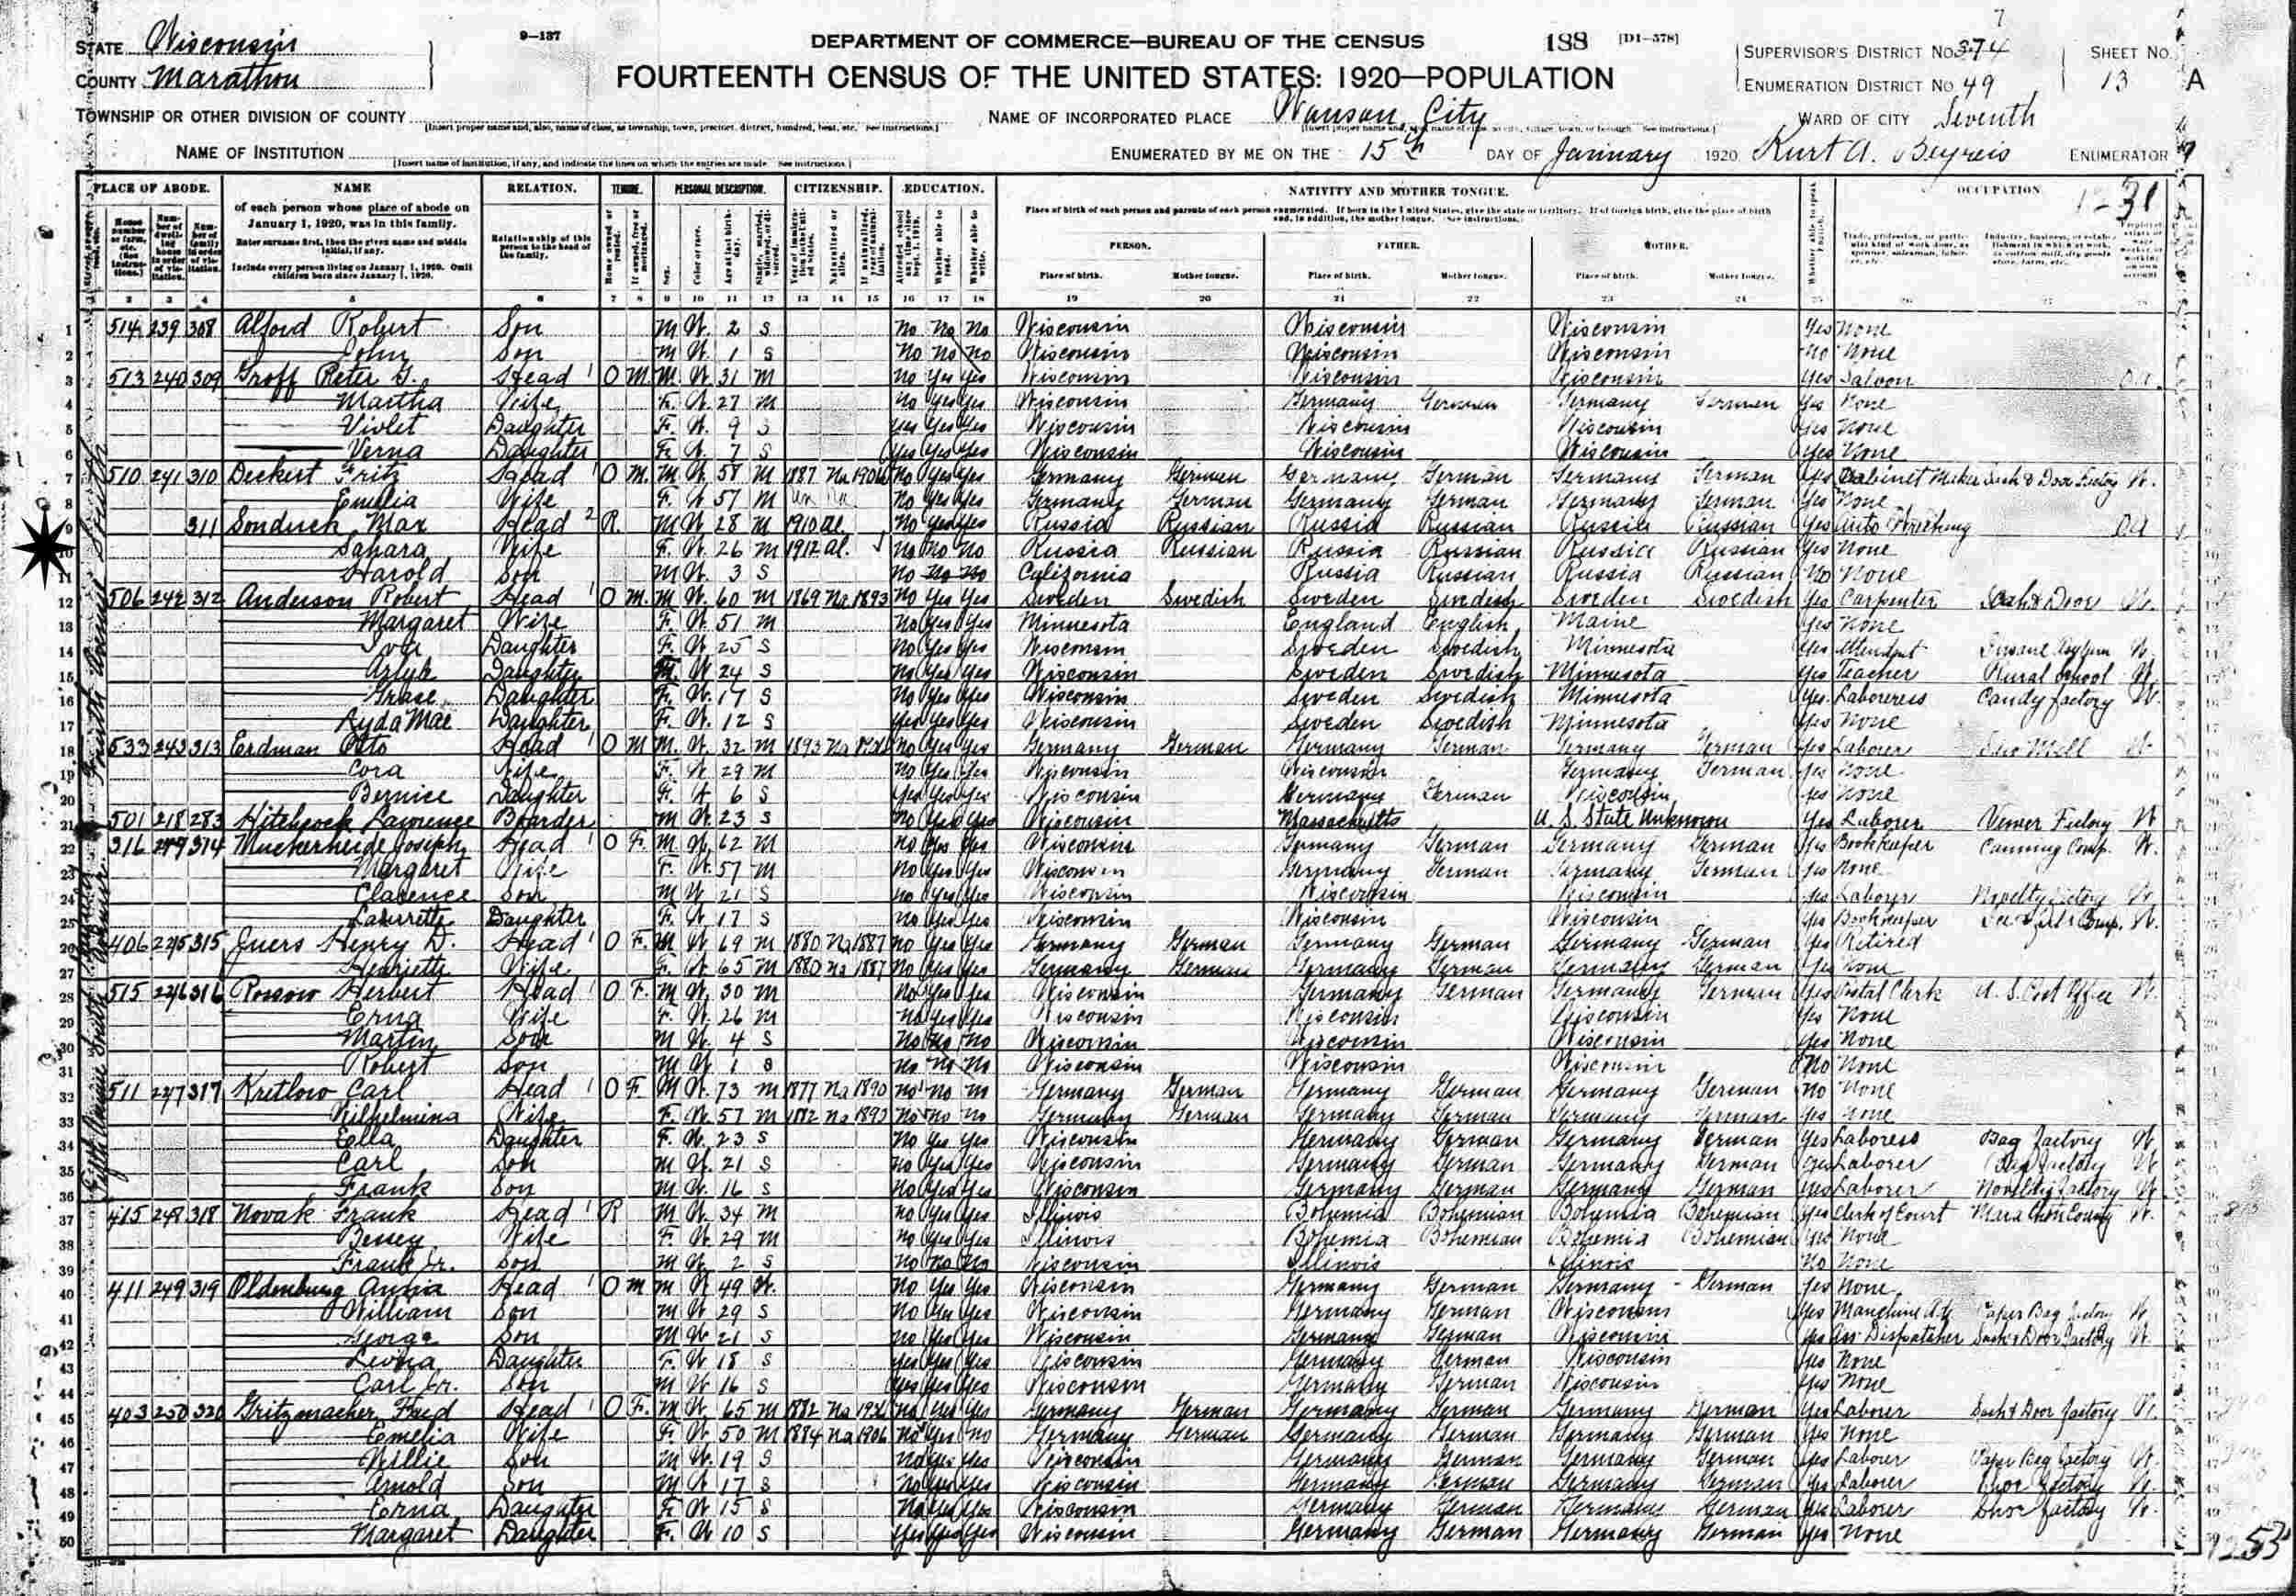 STATE Wisconsin
COUNTY Marathon
9—137
DEPARTMENT OF COMMERCE—BUREAU OF THE CENSUS
188 [D1-578]
FOURTEENTH CENSUS OF THE UNITED STATES: 1920—POPULATION
SUPERVISOR'S DISTRICT No. 374
ENUMERATION DISTRICT No. 49
SHEET No. 13 A
TOWNSHIP OR OTHER DIVISION OF COUNTY
[Insert proper name and, also, name of class, as township, town, precinct, district, hundred, beat, etc. See instructions.]
NAME OF INCORPORATED PLACE Wausau City
WARD OF CITY Seventh
NAME OF INSTITUTION
[Insert name of institution, if any, and indicate the lines on which the entries are made. See instructions.]
ENUMERATED BY ME ON THE 15th DAY OF January 1920. Kurt A. Beyreis ENUMERATOR
PLACE OF ABODE. NAME RELATION. TENURE. PERSONAL DESCRIPTION. CITIZENSHIP. EDUCATION. NATIVITY AND MOTHER TONGUE. OCCUPATION
of each person whose place of abode on January 1, 1920, was in this family.
Enter surname first, then the given name and middle initial, if any.
Include every person living on January 1, 1920. Omit children born since January 1, 1920.
Relationship of this person to the head of the family.
Place of birth of each person and parents of each person enumerated. If born in the United States, give the state or territory. If of foreign birth, give the place of birth and, in addition, the mother tongue. (See instructions.)
PERSON. FATHER. MOTHER.
Place of birth. Mother tongue. Place of birth. Mother tongue. Place of birth. Mother tongue.
1 514 239 308 Alford Robert Son M W 2 S No No No Wisconsin Wisconsin Wisconsin Yes None
2 John Son M W 1 S No No No Wisconsin Wisconsin Wisconsin No None
3 513 240 309 Groff Peter G. Head 1 O M M W 31 M No Yes Yes Wisconsin Wisconsin Wisconsin Yes Saloon OA
4 Martha Wife F W 27 M No Yes Yes Wisconsin Germany German Germany German Yes None
5 Violet Daughter F W 9 S Yes Yes Yes Wisconsin Wisconsin Wisconsin Yes None
6 Verna Daughter F W 7 S Yes Yes Yes Wisconsin Wisconsin Wisconsin Yes None
7 510 241 310 Deckert Fritz Head 1 O M M W 58 M 1887 Na No Yes Yes Germany German Germany German Germany German Yes Cabinet Maker Sash & Door Factory W
8 Emelia Wife F W 57 M No Yes Yes Germany German Germany German Germany German Yes None
9 311 Max Head 2 R M W 28 M 1910 Al No Yes Yes Russia Russian Russia Russian Russia Russian Yes Auto OA
10 Sahara Wife F W 26 M 1912 Al No No No Russia Russian Russia Russian Russia Russian Yes None
11 Harold Son M W 3 S No No No California Russia Russian Russia Russian No None
12 506 242 312 Anderson Robert Head 1 O M M W 60 M 1869 Na 1893 No Yes Yes Sweden Swedish Sweden Swedish Sweden Swedish Yes Carpenter Sash & Door W
13 Margaret Wife F W 51 M No Yes Yes Minnesota England English Maine Yes None
14 Daughter F W 25 S No Yes Yes Wisconsin Sweden Swedish Minnesota Yes Attendant Insane Asylum W
15 Daughter F W 24 S No Yes Yes Wisconsin Sweden Swedish Minnesota Yes Teacher Rural School W
16 Grase Daughter F W 17 S No Yes Yes Wisconsin Sweden Swedish Minnesota Yes Laboreress Candy factory W
17 Mae Daughter F W 12 S Yes Yes Yes Wisconsin Sweden Swedish Minnesota Yes None
18 533 243 313 Erdman Otto Head 1 O M M W 32 M 1893 Na No Yes Yes Germany German Germany German Germany German Yes Laborer Saw Mill W
19 Cora Wife F W 29 M No Yes Yes Wisconsin Wisconsin Germany German Yes None
20 Bernice Daughter F W 6 S Yes Yes Yes Wisconsin Germany German Wisconsin Yes None
21 501 218 283 Hitchcock Lawrence Boarder M W 23 S No Yes Yes Wisconsin Massachutts U. S. State Unknown Yes Laborer W
22 316 314 Muckerheide Joseph Head 1 O F M W 62 M No Yes Yes Wisconsin Germany German Germany German Yes Bookkeeper Canning Comp. W
23 Margaret Wife F W 57 M No Yes Yes Wisconsin Germany German Germany German Yes None
24 Clarence Son M W 21 S No Yes Yes Wisconsin Wisconsin Wisconsin Yes Laborer Novelty factory W
25 Daughter F W 17 S No Yes Yes Wisconsin Wisconsin Wisconsin Yes Bookkeeper Comp. W
26 406 245 315 Juers Henry D. Head 1 O F M W 69 M 1880 Na 1887 No Yes Yes Germany German Germany German Germany German Yes Retired
27 Henriette Wife F W 65 M 1880 Na 1887 No Yes Yes Germany German Germany German Germany German Yes None
28 515 246 316 Possow Herbert Head 1 O F M W 30 M No Yes Yes Wisconsin Germany German Germany German Yes Postal Clerk U. S. Post Office W
29 Erna Wife F W 26 M No Yes Yes Wisconsin Wisconsin Wisconsin Yes None
30 Martin Son M W 4 S No No No Wisconsin Wisconsin Wisconsin Yes None
31 Robert Son M W 1 S No No No Wisconsin Wisconsin Wisconsin No None
32 511 247 317 Kretlow Carl Head 1 O F M W 73 M 1877 Na 1890 No No No Germany German Germany German Germany German No None
33 Wilhelmina Wife F W 57 M 1882 Na No No No Germany German Germany German Germany German Yes None
34 Ella Daughter F W 23 S No Yes Yes Wisconsin Germany German Germany German Yes Laboress Bag factory W
35 Carl Son M W 21 S No Yes Yes Wisconsin Germany German Germany German Yes Laborer Bag factory W
36 Frank Son M W 16 S No Yes Yes Wisconsin Germany German Germany German Yes Laborer Novelty factory W
37 415 248 318 Novak Frank Head 1 R M W 34 M No Yes Yes Illinois Bohemia Bohemian Bohemia Bohemian Yes Clerk of Court Marathon County W
38 Bessey Wife F W 29 M No Yes Yes Illinois Bohemia Bohemian Bohemia Bohemian Yes None
39 Frank Jr. Son M W 2 S No No No Wisconsin Illinois Illinois No None
40 411 249 319 Oldenburg Annia Head 1 O M M W 49 No Yes Yes Wisconsin Germany German Germany German Yes None
41 William Son M W 29 S No Yes Yes Wisconsin Germany German Wisconsin Yes Paper Bag factory W
42 George Son M W 21 S No Yes Yes Wisconsin Germany German Wisconsin Yes Dispatcher Sash & Door Factory W
43 Leona Daughter F W 18 S Yes Yes Yes Wisconsin Germany German Wisconsin Yes None
44 Carl Jr. Son M W 16 S Yes Yes Yes Wisconsin Germany German Wisconsin Yes None
45 403 250 320 Gritzmacher Fred Head 1 O F M W 65 M 1882 Na No Yes Yes Germany German Germany German Germany German Yes Laborer Sash & Door factory W
46 Emelia Wife F W 50 M 1884 Na 1906 No Yes No Germany German Germany German Germany German Yes None
47 Willie Son M W 19 S No Yes Yes Wisconsin Germany German Germany German Yes Laborer Paper Bag factory W
48 Arnold Son M W 17 S No Yes Yes Wisconsin Germany German Germany German Yes Laborer Shoe factory W
49 Erna Daughter F W 15 S No Yes Yes Wisconsin Germany German Germany German Yes Laborer Shoe factory W
50 Margaret Daughter F W 10 S Yes Yes Yes Wisconsin Germany German Germany German Yes None